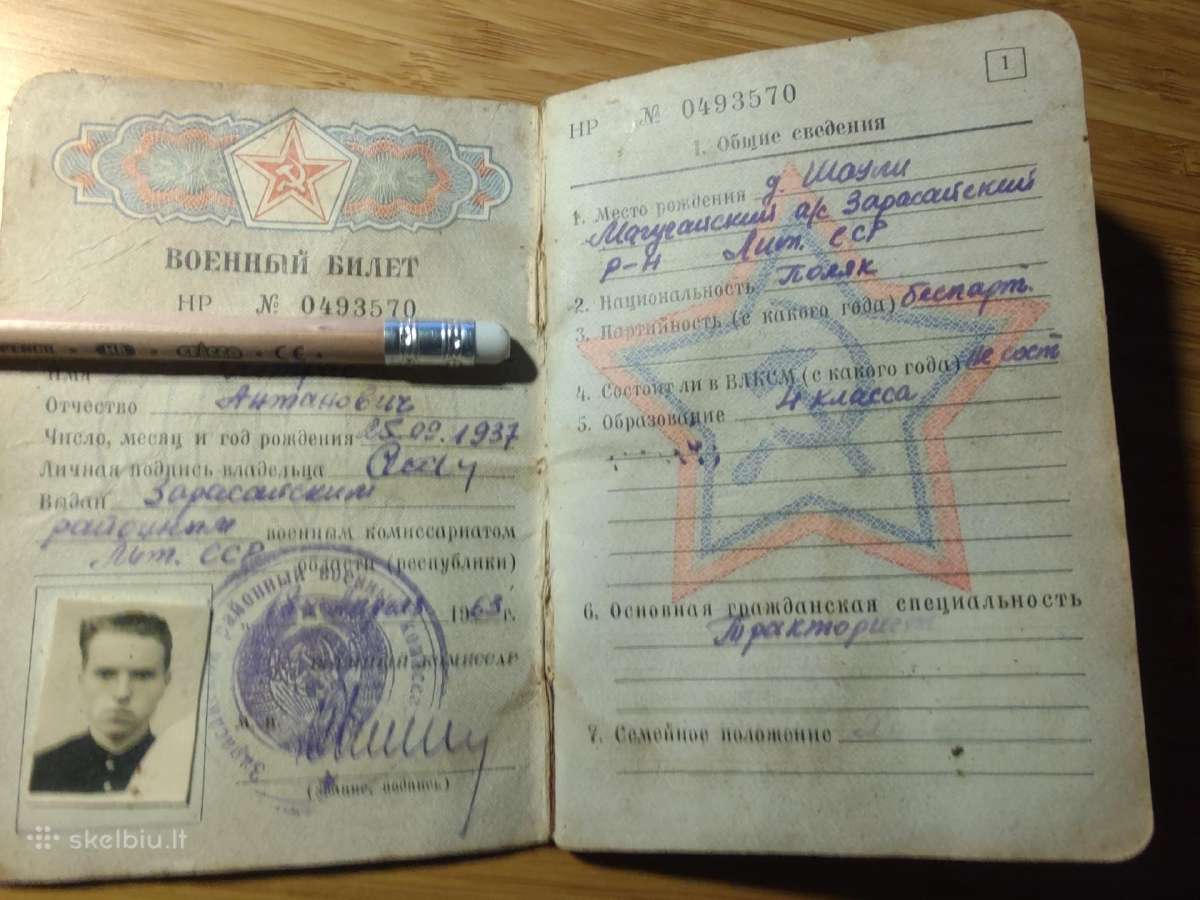 ВОЕННЫЙ БИЛЕТ
НР № 0493570
HB CE
Имя
Отчество Антанович
Число, месяц и год рождения 25.09.1937
Личная подпись владельца
Выдан Зарасайским
районным военным комиссариатом
Лит. ССР области (республики)
1963 г.
Военный комиссар
М. П.
(звание, подпись)
skelbiu.lt
1
НР № 0493570
1. Общие сведения
1. Место рождения д. Шаули
Магучайский а/с Зарасайский
р-н Лит. ССР
2. Национальность Поляк
3. Партийность (с какого года) беспарт.
4. Состоит ли в ВЛКСМ (с какого года) не сост
5. Образование 4 класса
6. Основная гражданская специальность
Тракторист
7. Семейное положение